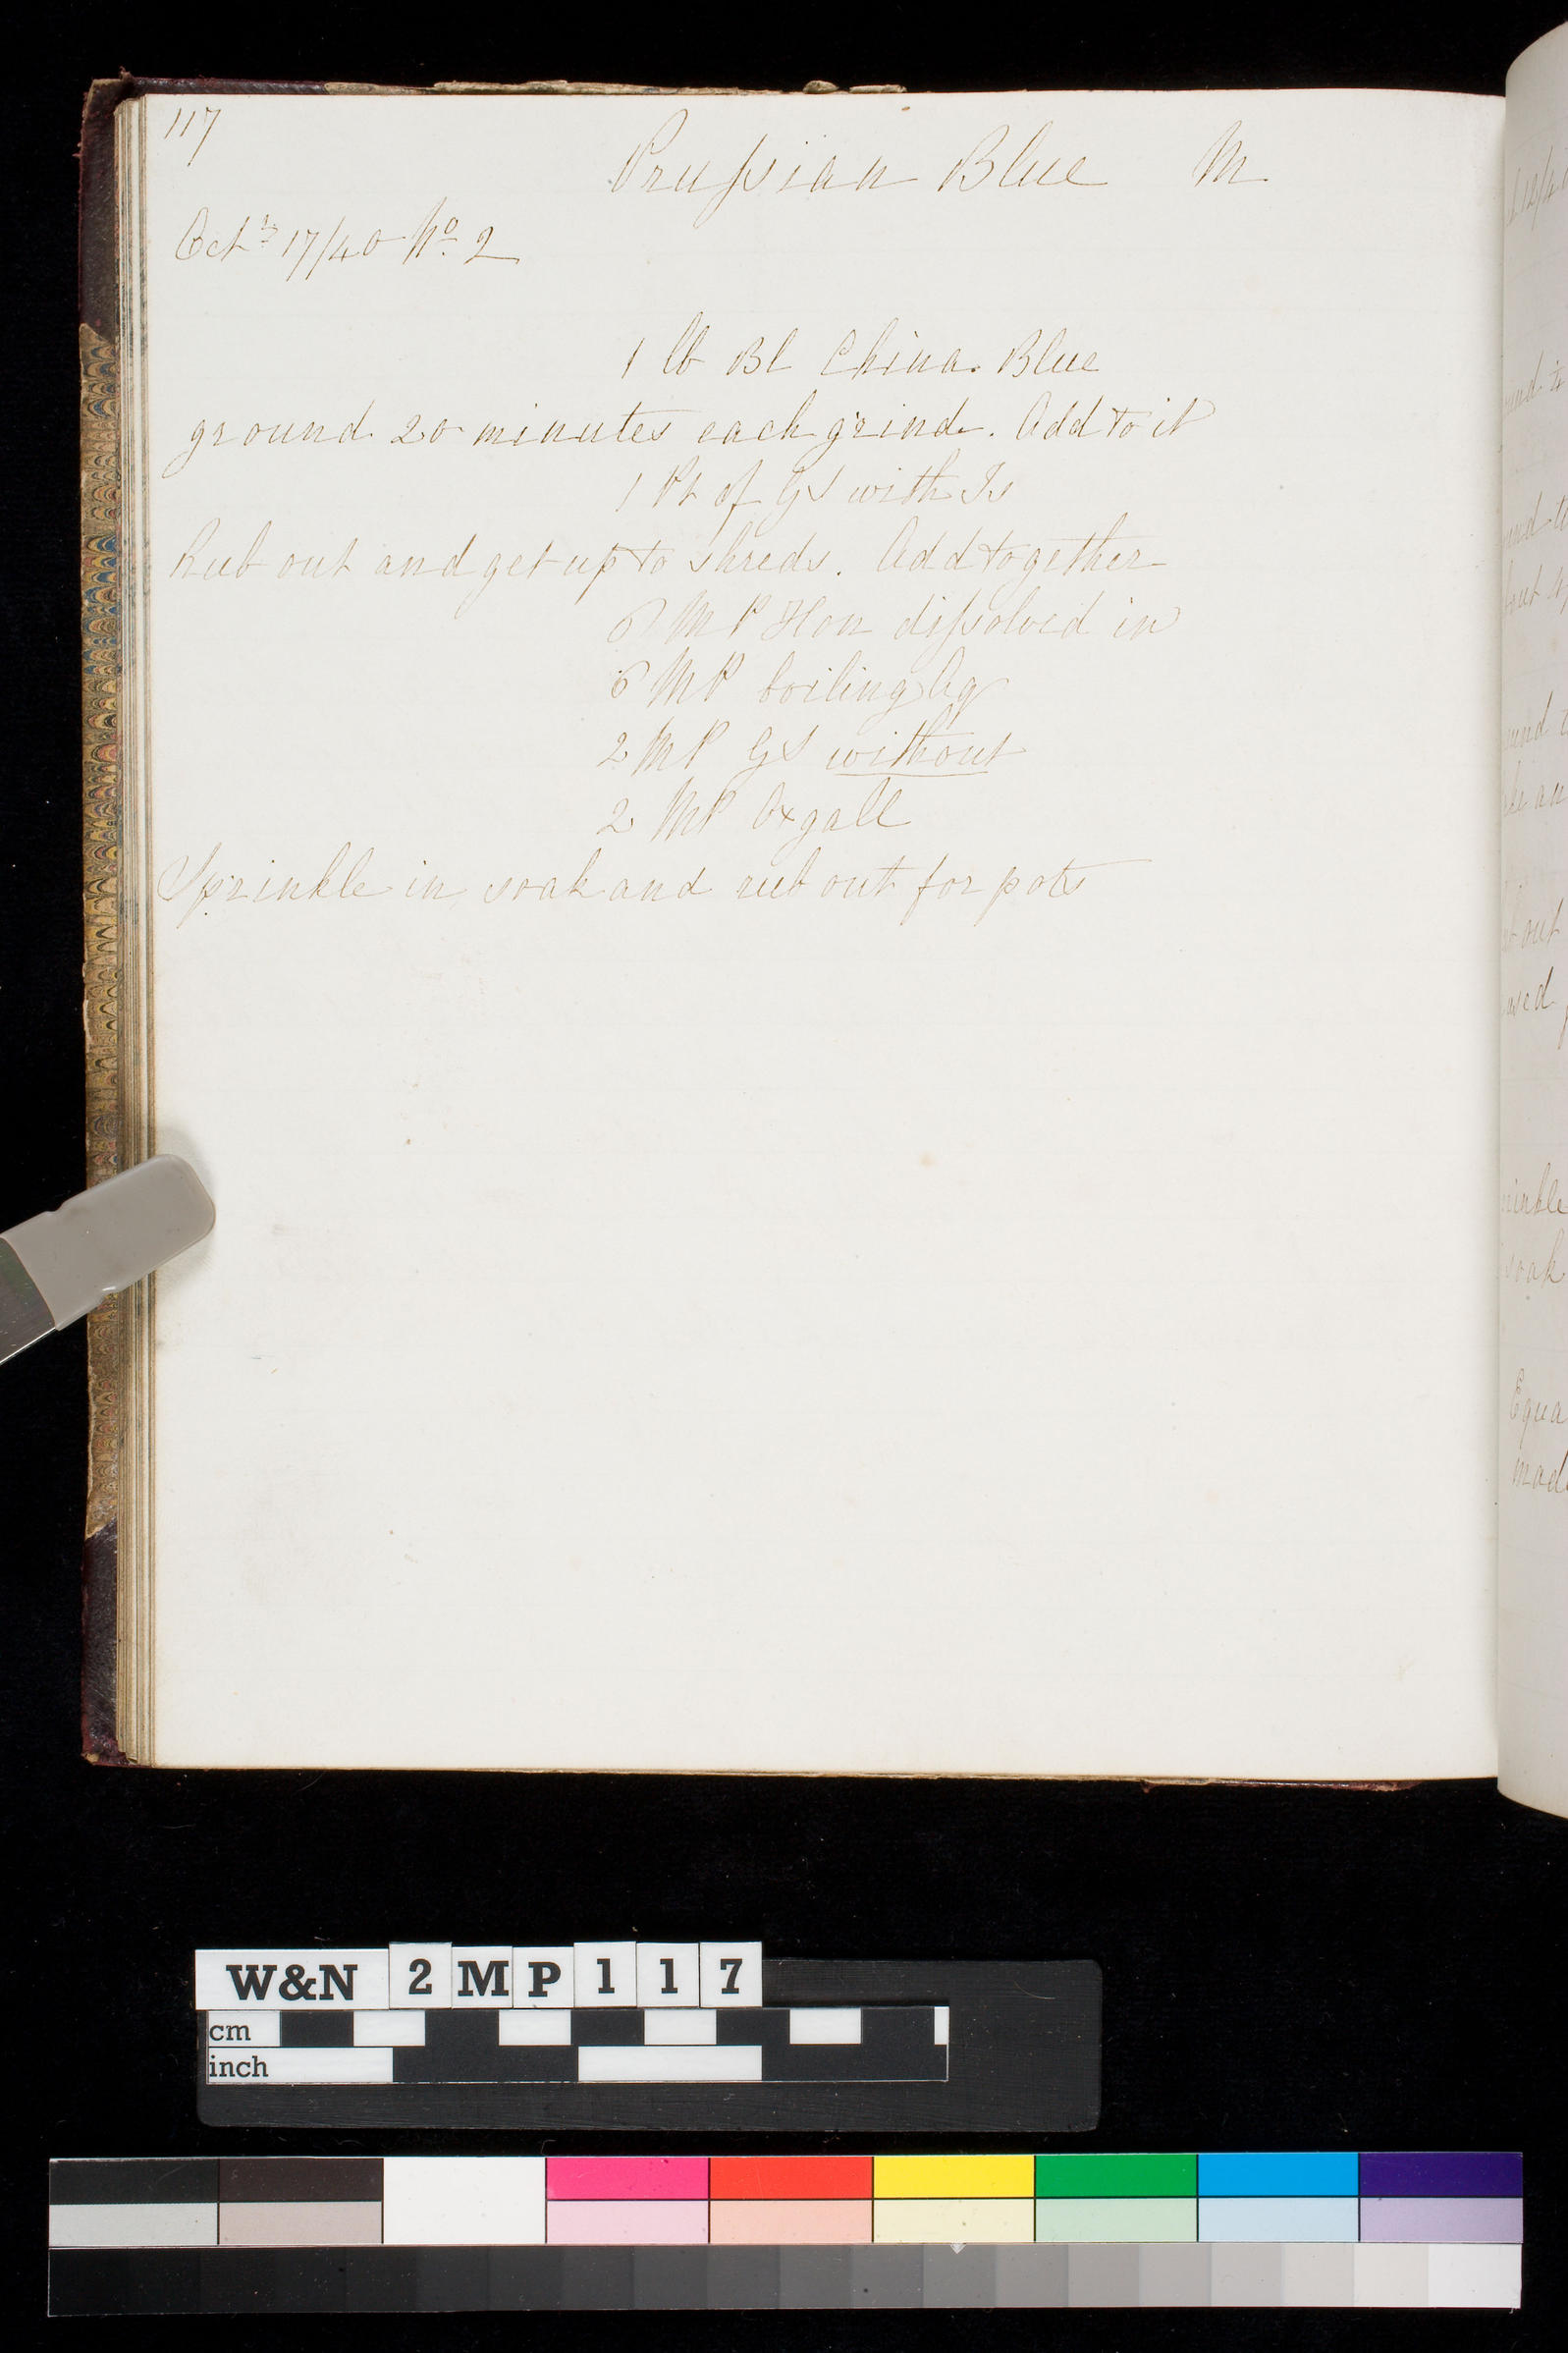 117
Prussian Blue M
Octr 17/40 No. 2
1 lb Bl China. Blue
ground 20 minutes each grind. Add to it
1 Pt of GS with Is
Rub out and get up to shreds. Add together
6 MP Hon dissolved in
6 MP boiling Aq
2 MP GS without
2 MP Oxgall
Sprinkle in, soak and rub out for pots
soak
Equa
W&N 2MP117
cm
inch